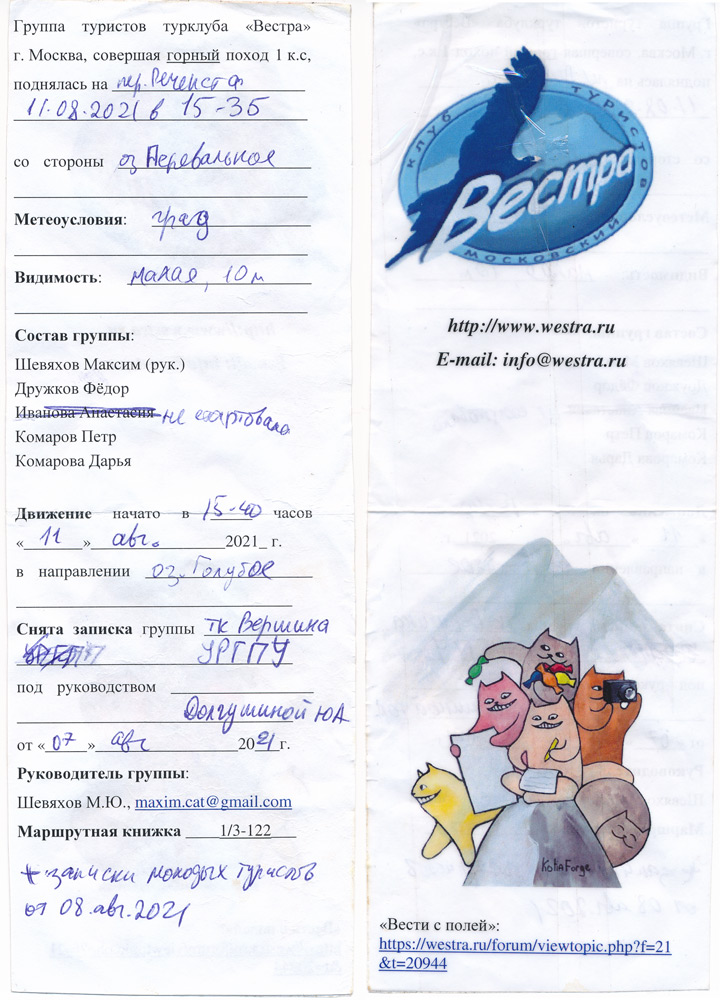 Группа туристов турклуба «Вестра»
г. Москва, совершая горный поход 1 к.с,
поднялась на пер. Речениста
11.08.2021 в 15-35
со стороны оз Перевальное
Метеоусловия: град
Видимость: малая, 10 м
Состав группы:
Шевяхов Максим (рук.)
Дружков Фёдор
Иванова Анастасия не стартовала
Комаров Петр
Комарова Дарья
Движение начато в 15-40 часов
« 11 » авг. 2021_ г.
в направлении оз. Голубое
Снята записка группы тк Вершина
УРГПУ
под руководством
Долгушиной ЮА
от « 07 » авг 2021 г.
Руководитель группы:
Шевяхов М.Ю., maxim.cat@gmail.com
Маршрутная книжка 1/3-122
+ записки молодых туристов
от 08.авг.2021
КЛУБ ТУРИСТОВ
Вестра
МОСКОВСКИЙ
http://www.westra.ru
E-mail: info@westra.ru
KotiaForge
«Вести с полей»:
https://westra.ru/forum/viewtopic.php?f=21
&t=20944